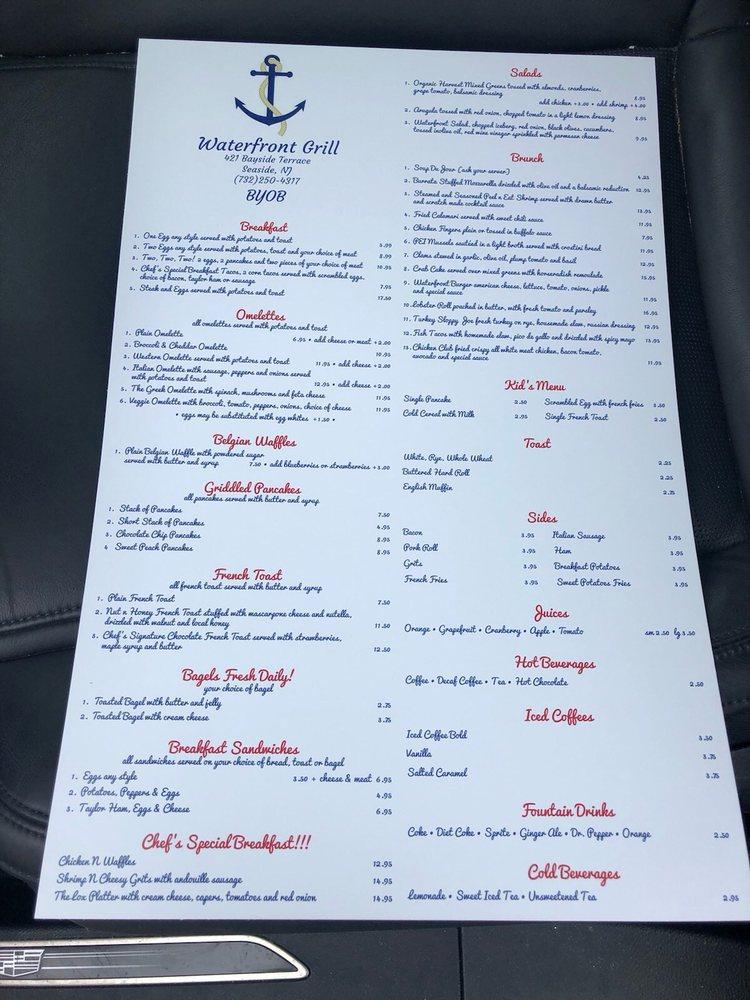 Waterfront Grill
421 Bayside Terrace
Seaside, NJ
(732)250-4317
BYOB
Breakfast
1. One Egg any style served with potatoes and toast 5.99
2. Two Eggs any style served with potatoes, toast and your choice of meat 8.99
3. Two, Two, Two! 2 eggs, 2 pancakes and two pieces of your choice of meat 10.95
4. Chef's Special Breakfast Tacos, 2 corn tacos served with scrambled eggs,
choice of bacon, taylor ham or sausage 7.95
5. Steak and Eggs served with potatoes and toast 17.50
Omelettes
all omelettes served with potatoes and toast
1. Plain Omelette 6.95 • add cheese or meat +2.00
2. Broccoli & Cheddar Omelette 10.95
3. Western Omelette served with potatoes and toast 11.95 • add cheese +2.00
4. Italian Omelette with sausage, peppers and onions served
with potatoes and toast 12.95 • add cheese +2.00
5. The Greek Omelette with spinach, mushrooms and feta cheese 11.95
6. Veggie Omelette with broccoli, tomato, peppers, onions, choice of cheese 11.95
• eggs may be substituted with egg whites +1.50 •
Belgian Waffles
1. Plain Belgian Waffle with powdered sugar
served with butter and syrup 7.50 • add blueberries or strawberries +3.00
Griddled Pancakes
all pancakes served with butter and syrup
1. Stack of Pancakes 7.50
2. Short Stack of Pancakes 4.95
3. Chocolate Chip Pancakes 8.95
4 Sweet Peach Pancakes 8.95
French Toast
all french toast served with butter and syrup
1. Plain French Toast 7.50
2. Nut n Honey French Toast stuffed with mascarpone cheese and nutella,
drizzled with walnut and local honey 11.50
3. Chef's Signature Chocolate French Toast served with strawberries,
maple syrup and butter 12.50
Bagels Fresh Daily!
your choice of bagel
1. Toasted Bagel with butter and jelly 2.75
2. Toasted Bagel with cream cheese 3.75
Breakfast Sandwiches
all sandwiches served on your choice of bread, toast or bagel
1. Eggs any style 3.50 + cheese & meat 6.95
2. Potatoes, Peppers & Eggs 4.95
3. Taylor Ham, Eggs & Cheese 6.95
Chef's Special Breakfast!!!
Chicken N Waffles 12.95
Shrimp N Cheesy Grits with andouille sausage 14.95
The Lox Platter with cream cheese, capers, tomatoes and red onion 14.95
Salads
1. Organic Harvest Mixed Greens tossed with almonds, cranberries,
grape tomato, balsamic dressing 8.95
add chicken +3.00 • add shrimp +4.00
2. Arugula tossed with red onion, chopped tomato in a light lemon dressing 8.95
3. Waterfront Salad, chopped iceberg, red onion, black olives, cucumbers,
tossed in olive oil, red wine vinegar sprinkled with parmesan cheese 9.95
Brunch
1. Soup Du Jour (ask your server) 4.25
2. Burrata Stuffed Mozzarella drizzled with olive oil and a balsamic reduction 12.95
3. Steamed and Seasoned Peel n Eat Shrimp served with drawn butter
and scratch made cocktail sauce 13.95
4. Fried Calamari served with sweet chili sauce 11.95
5. Chicken Fingers plain or tossed in buffalo sauce 7.95
6. PEI Mussels sautéed in a light broth served with crostini bread 11.95
7. Clams steamed in garlic, olive oil, plump tomato and basil 12.95
8. Crab Cake served over mixed greens with horseradish remoulade 15.95
9. Waterfront Burger american cheese, lettuce, tomato, onions, pickle
and special sauce 11.95
10. Lobster Roll poached in butter, with fresh tomato and parsley 16.95
11. Turkey Sloppy Joe fresh turkey on rye, housemade slaw, russian dressing 12.95
12. Fish Tacos with homemade slaw, pico de gallo and drizzled with spicy mayo 13.95
13. Chicken Club fried crispy all white meat chicken, bacon, tomato,
avocado and special sauce 11.95
Kid's Menu
Single Pancake 2.50 Scrambled Egg with french fries 3.50
Cold Cereal with Milk 2.95 Single French Toast 2.50
Toast
White, Rye, Whole Wheat 2.25
Buttered Hard Roll 2.25
English Muffin 2.75
Sides
Bacon 3.95 Italian Sausage 3.95
Pork Roll 3.95 Ham 3.95
Grits 3.95 Breakfast Potatoes 3.95
French Fries 3.95 Sweet Potatoes Fries 3.95
Juices
Orange • Grapefruit • Cranberry • Apple • Tomato sm 2.50 lg 3.50
Hot Beverages
Coffee • Decaf Coffee • Tea • Hot Chocolate 2.50
Iced Coffees
Iced Coffee Bold 3.50
Vanilla 3.75
Salted Caramel 3.75
Fountain Drinks
Coke • Diet Coke • Sprite • Ginger Ale • Dr. Pepper • Orange 2.50
Cold Beverages
Lemonade • Sweet Iced Tea • Unsweetened Tea 2.95